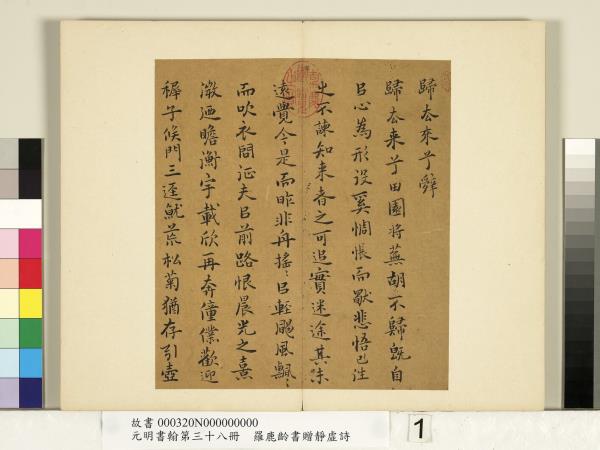 歸去來兮辭
歸去來兮田園將蕪胡不歸既自
以心為形役奚惆悵而獨悲悟已往
之不諫知來者之可追實迷途其未
遠覺今是而昨非舟搖〻以輕颺風飄〻
而吹衣問征夫以前路恨晨光之熹
微迺瞻衡宇載欣再奔僮僕歡迎
穉子候門三逕就荒松菊猶存引壺
故書 000320N000000000
元明書翰第三十八冊 羅鹿齡書贈靜虛詩
1